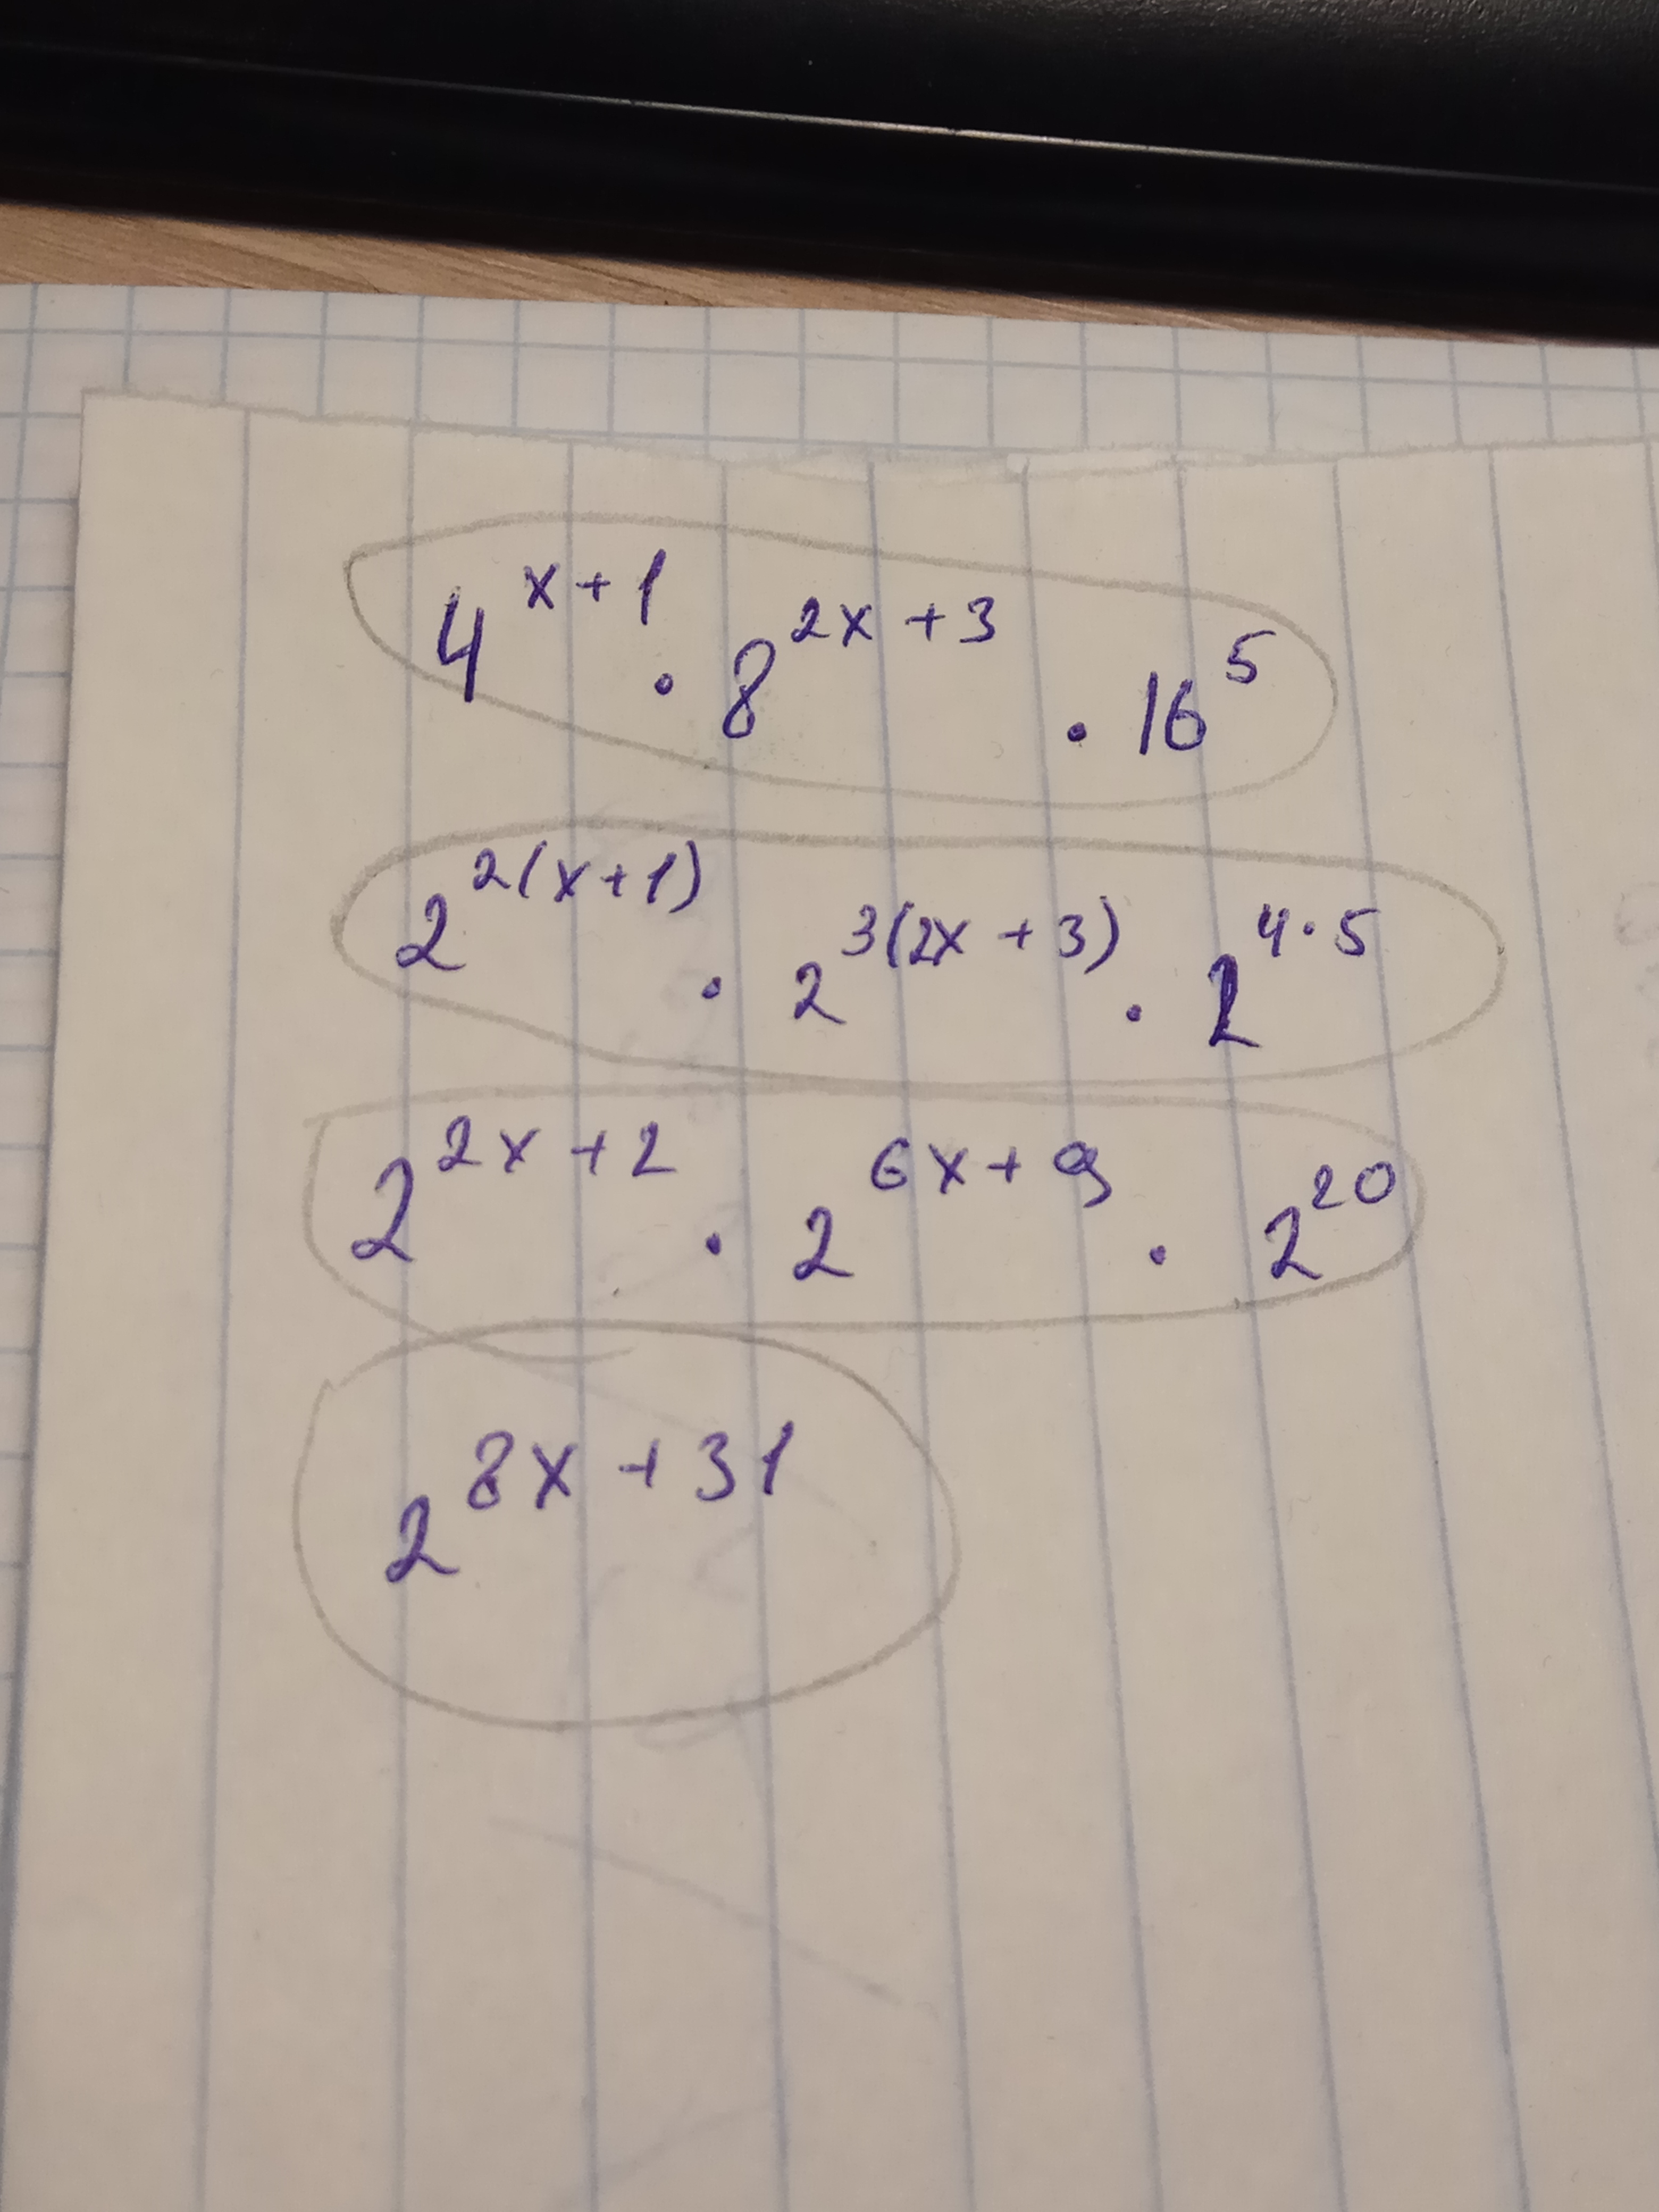 4^{x+1} · 8^{2x+3} · 16^5
2^{2(x+1)} · 2^{3(2x+3)} · 2^{4·5}
2^{2x+2} · 2^{6x+9} · 2^{20}
2^{8x+31}